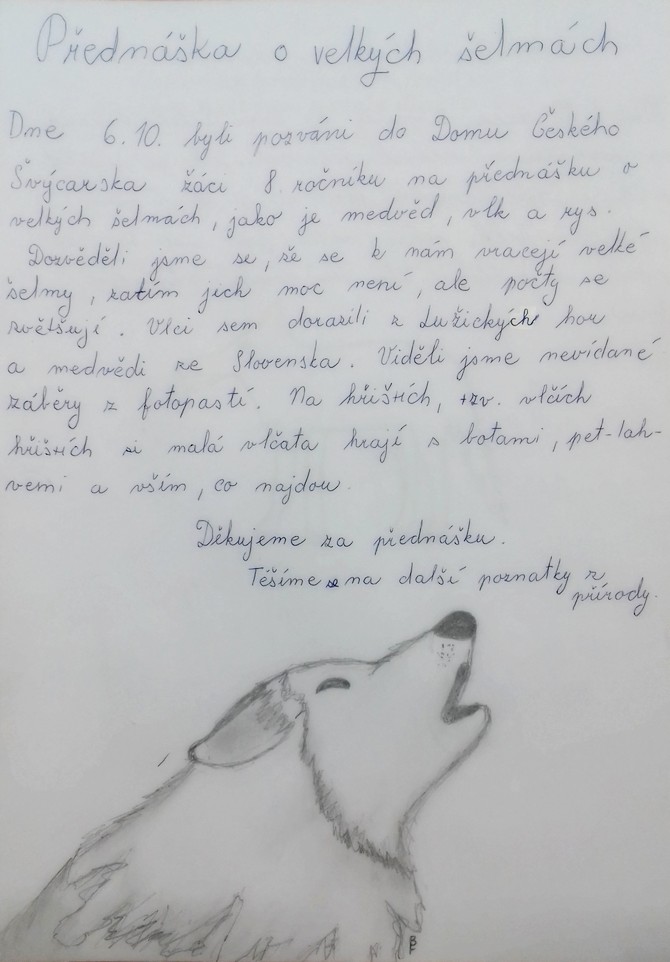 Přednáška o velkých šelmách
Dne 6.10. byli pozváni do Domu Českého
Švýcarska žáci 8. ročníku na přednášku o
velkých šelmách, jako je medvěd, vlk a rys.
Dozvěděli jsme se, že se k nám vracejí velké
šelmy, zatím jich moc není, ale počty se
zvětšují. Vlci sem dorazili z Lužických hor
a medvědi ze Slovenska. Viděli jsme nevídané
záběry z fotopastí. Na hřištích, tzv. vlčích
hřištích si malá vlčata hrají s botami, pet-lah-
vemi a vším, co najdou.
Děkujeme za přednášku.
Těšíme se na další poznatky z
přírody.
BF